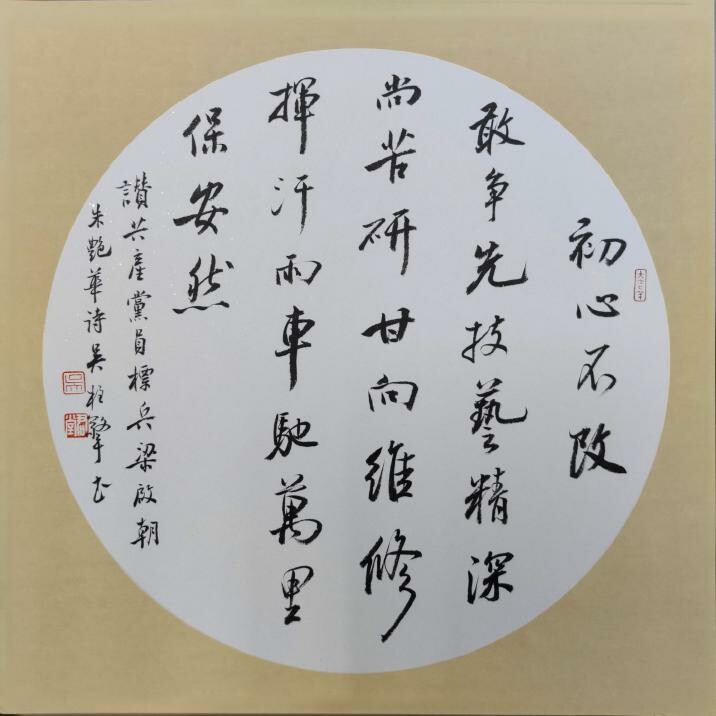 初心不改
敢争先技藝精深
尚苦研甘向維修
揮汗雨車馳萬里
保安然
讃共產黨員標兵梁啟朝
朱艷華诗吴柱擎书